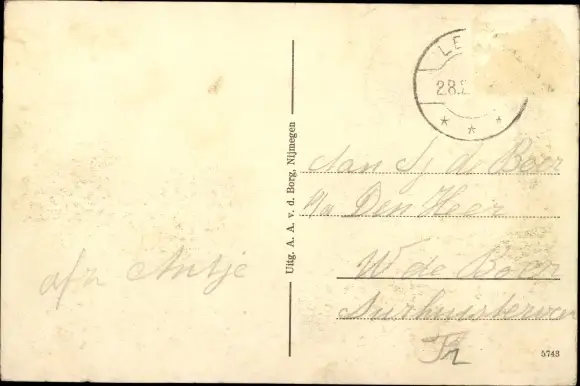 afz Antje
Uitg. A. A. v. d. Borg, Nijmegen
LE
28.2
Aan Sj de Boer
p/a Den Heer
W de Boer
Surhuisterveen
Fr
5743